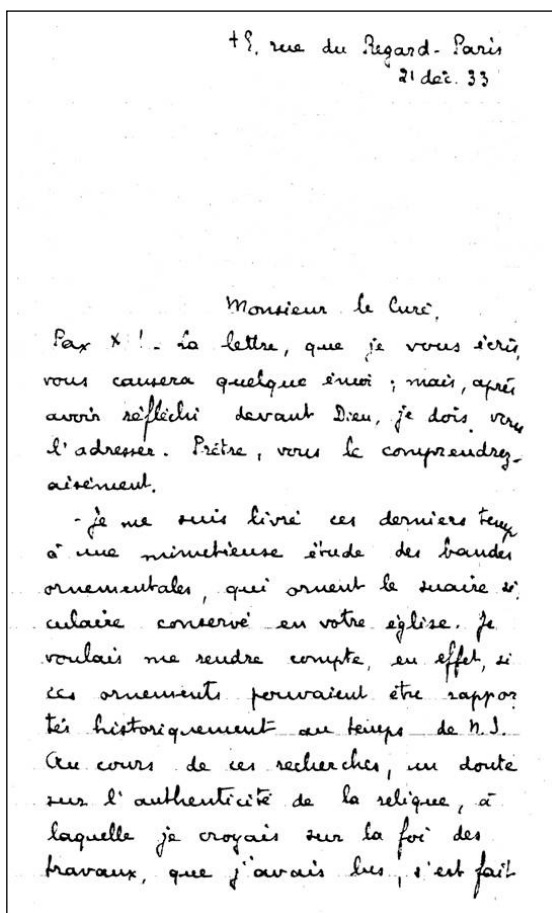 rue du Regard - Paris
21 déc. 33
Monsieur le Curé,
Pax X ! - La lettre, que je vous écris,
vous causera quelque émoi ; mais, après
avoir réfléchi devant Dieu, je dois vous
l'adresser. Prêtre, vous le comprendrez
aisément.
- Je me suis livré ces derniers temps
à une minutieuse étude des bandes
ornementales, qui ornent le suaire sé
culaire conservé en votre église. Je
voulais me rendre compte, en effet, si
ces ornements pouvaient être rappor
tés historiquement au temps de N. S.
Au cours de ces recherches, un doute
sur l'authenticité de la relique, à
laquelle je croyais sur la foi des
travaux, que j'avais lus, s'est fait